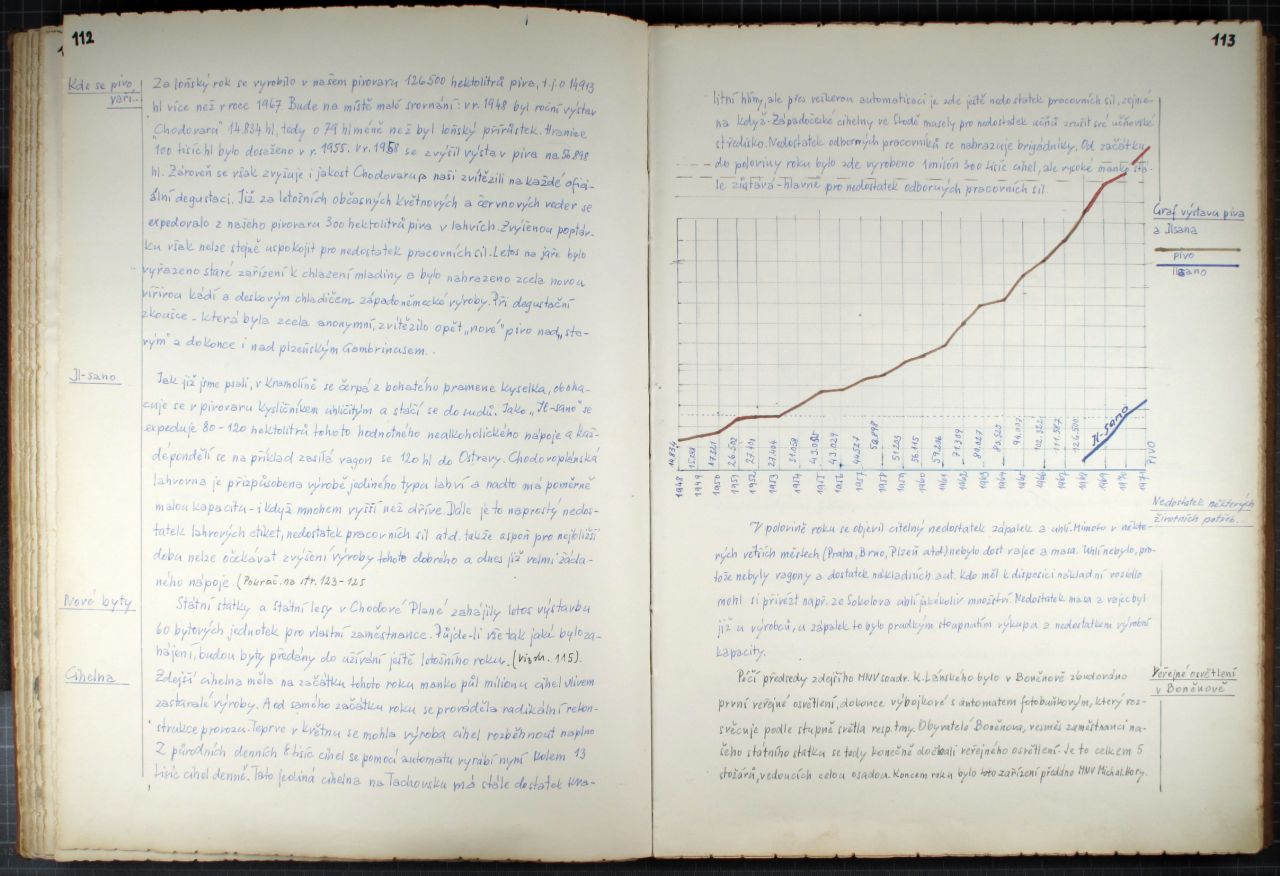 112
Kde se pivo
vaří...
Za loňský rok se vyrobilo v našem pivovaru 126.500 hektolitrů piva, t.j. o 14913
hl více než v roce 1967. Bude na místě malé srovnání: v r. 1948 byl roční výstav
"Chodovaru" 14.834 hl, tedy o 79 hl méně než byl loňský přírůstek. Hranice
100 tisíc hl bylo dosaženo v r. 1955. V r. 1958 se zvýšil výstav piva na 50.898
hl. Zároveň se však zvyšuje i jakost Chodovaru a naši zvítězili na každé ofici-
ální degustaci. Již za letošních občasných květnových a červnových veder se
expedovalo z našeho pivovaru 300 hektolitrů piva v lahvích. Zvýšenou poptáv-
ku však nelze stejně uspokojit pro nedostatek pracovních sil. Letos na jaře bylo
vyřazeno staré zařízení k chlazení mladiny a bylo nahrazeno zcela novou
vířivou kádí a deskovým chladičem západoněmecké výroby. Při degustační
zkoušce - která byla zcela anonymní, zvítězilo opět „nové" pivo nad „sta-
rým" a dokonce i nad plzeňským Gambrinusem.
Il-sano
Jak již jsme psali, v Kramolíně se čerpá z bohatého pramene kyselka, oboha-
cuje se v pivovaru kysličníkem uhličitým a stáčí se do sudů. Jako „Il-sano" se
expeduje 80-120 hektolitrů tohoto hodnotného nealkoholického nápoje a kaž-
dé pondělí se na příklad zasílá vagon se 120 hl do Ostravy. Chodovoplánská
lahvovna je přizpůsobena výrobě jediného typu lahví a nadto má poměrně
malou kapacitu - i když mnohem vyšší než dříve. Dále je to naprostý nedos-
tatek lahvových etiket, nedostatek pracovních sil atd. takže aspoň pro nejbližší
dobu nelze očekávat zvýšení výroby tohoto dobrého a dnes již velmi žáda-
ného nápoje. (Pokrač. na str. 123-125
Nové byty
Státní statky a Státní lesy v Chodové Plané zahájily letos výstavbu
60 bytových jednotek pro vlastní zaměstnance. Půjde-li vše tak jako bylo za-
hájeni, budou byty předány do užívání ještě letošního roku. (viz str. 115).
Cihelna
Zdejší cihelna měla na začátku tohoto roku manko půl milionu cihel vlivem
zastaralé výroby. A od samého začátku roku se prováděla radikální rekon-
strukce provozu. Teprve v květnu se mohla výroba cihel rozběhnout naplno
Z původních denních 8 tisíc cihel se pomocí automatu vyrábí nyní kolem 13
tisíc cihel denně. Tato jediná cihelna na Tachovsku má stále dostatek kva-
113
litní hlíny, ale přes veškerou automatisaci je zde ještě nedostatek pracovních sil, zejmé-
na když Západočeské cihelny ve Stodě musely pro nedostatek učňů zrušit své učňovské
středisko. Nedostatek odborných pracovníků se nahrazuje brigádníky. Od začátku
do poloviny roku bylo zde vyrobeno 1 milión 300 tisíc cihel, ale vysoké manko stá-
le zůstává - hlavně pro nedostatek odborných pracovních sil.
Graf výstavu piva
a Ilsana
pivo
Ilsano
Il-sano
14.834 17.221 26.502 27.404 31.058 43.029 50.898 51.203 56.115 59.206 71.709 80.027 102.322 111.587 126.500
1948 1949 1950 1951 1952 1953 1954 1955 1956 1957 1958 1959 1960 1961 1962 1963 1964 1965 1966 1967 1968 1969 1970 1971
PIVO
Nedostatek některých
životních potřeb...
V polovině roku se objevil citelný nedostatek zápalek a uhlí. Mimoto v někte-
rých větších městech (Praha, Brno, Plzeň atd) nebylo dost vajec a masa. Uhlí nebylo, pro-
tože nebyly vagony a dostatek nákladních aut. Kdo měl k disposici nákladní vozidlo
mohl si přivézt např. ze Sokolova uhlí jakékoliv množství. Nedostatek masa a vajec byl
již u výrobců, u zápalek to bylo prudkým stoupnutím výkupu a nedostatkem výrobní
kapacity.
Veřejné osvětlení
v Boněnově
Péčí předsedy zdejšího MNV soudr. K. Lánského bylo v Boněnově zbudováno
první veřejné osvětlení, dokonce výbojkové s automatem fotobuňkovým, který roz-
svěcuje podle stupně světla resp. tmy. Obyvatelé Boněnova, vesměs zaměstnanci na-
šeho státního statku se tedy konečně dočkali veřejného osvětlení. Je to celkem 5
stožárů, vedoucích celou osadou. Koncem roku bylo toto zařízení předáno MNV Michal. Hory.